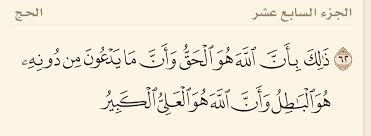 الجزء السابع عشر الحج
٦٢ ذَٰلِكَ بِأَنَّ اللَّهَ هُوَ الْحَقُّ وَأَنَّ مَا يَدْعُونَ مِن دُونِهِ
هُوَ الْبَاطِلُ وَأَنَّ اللَّهَ هُوَ الْعَلِيُّ الْكَبِيرُ